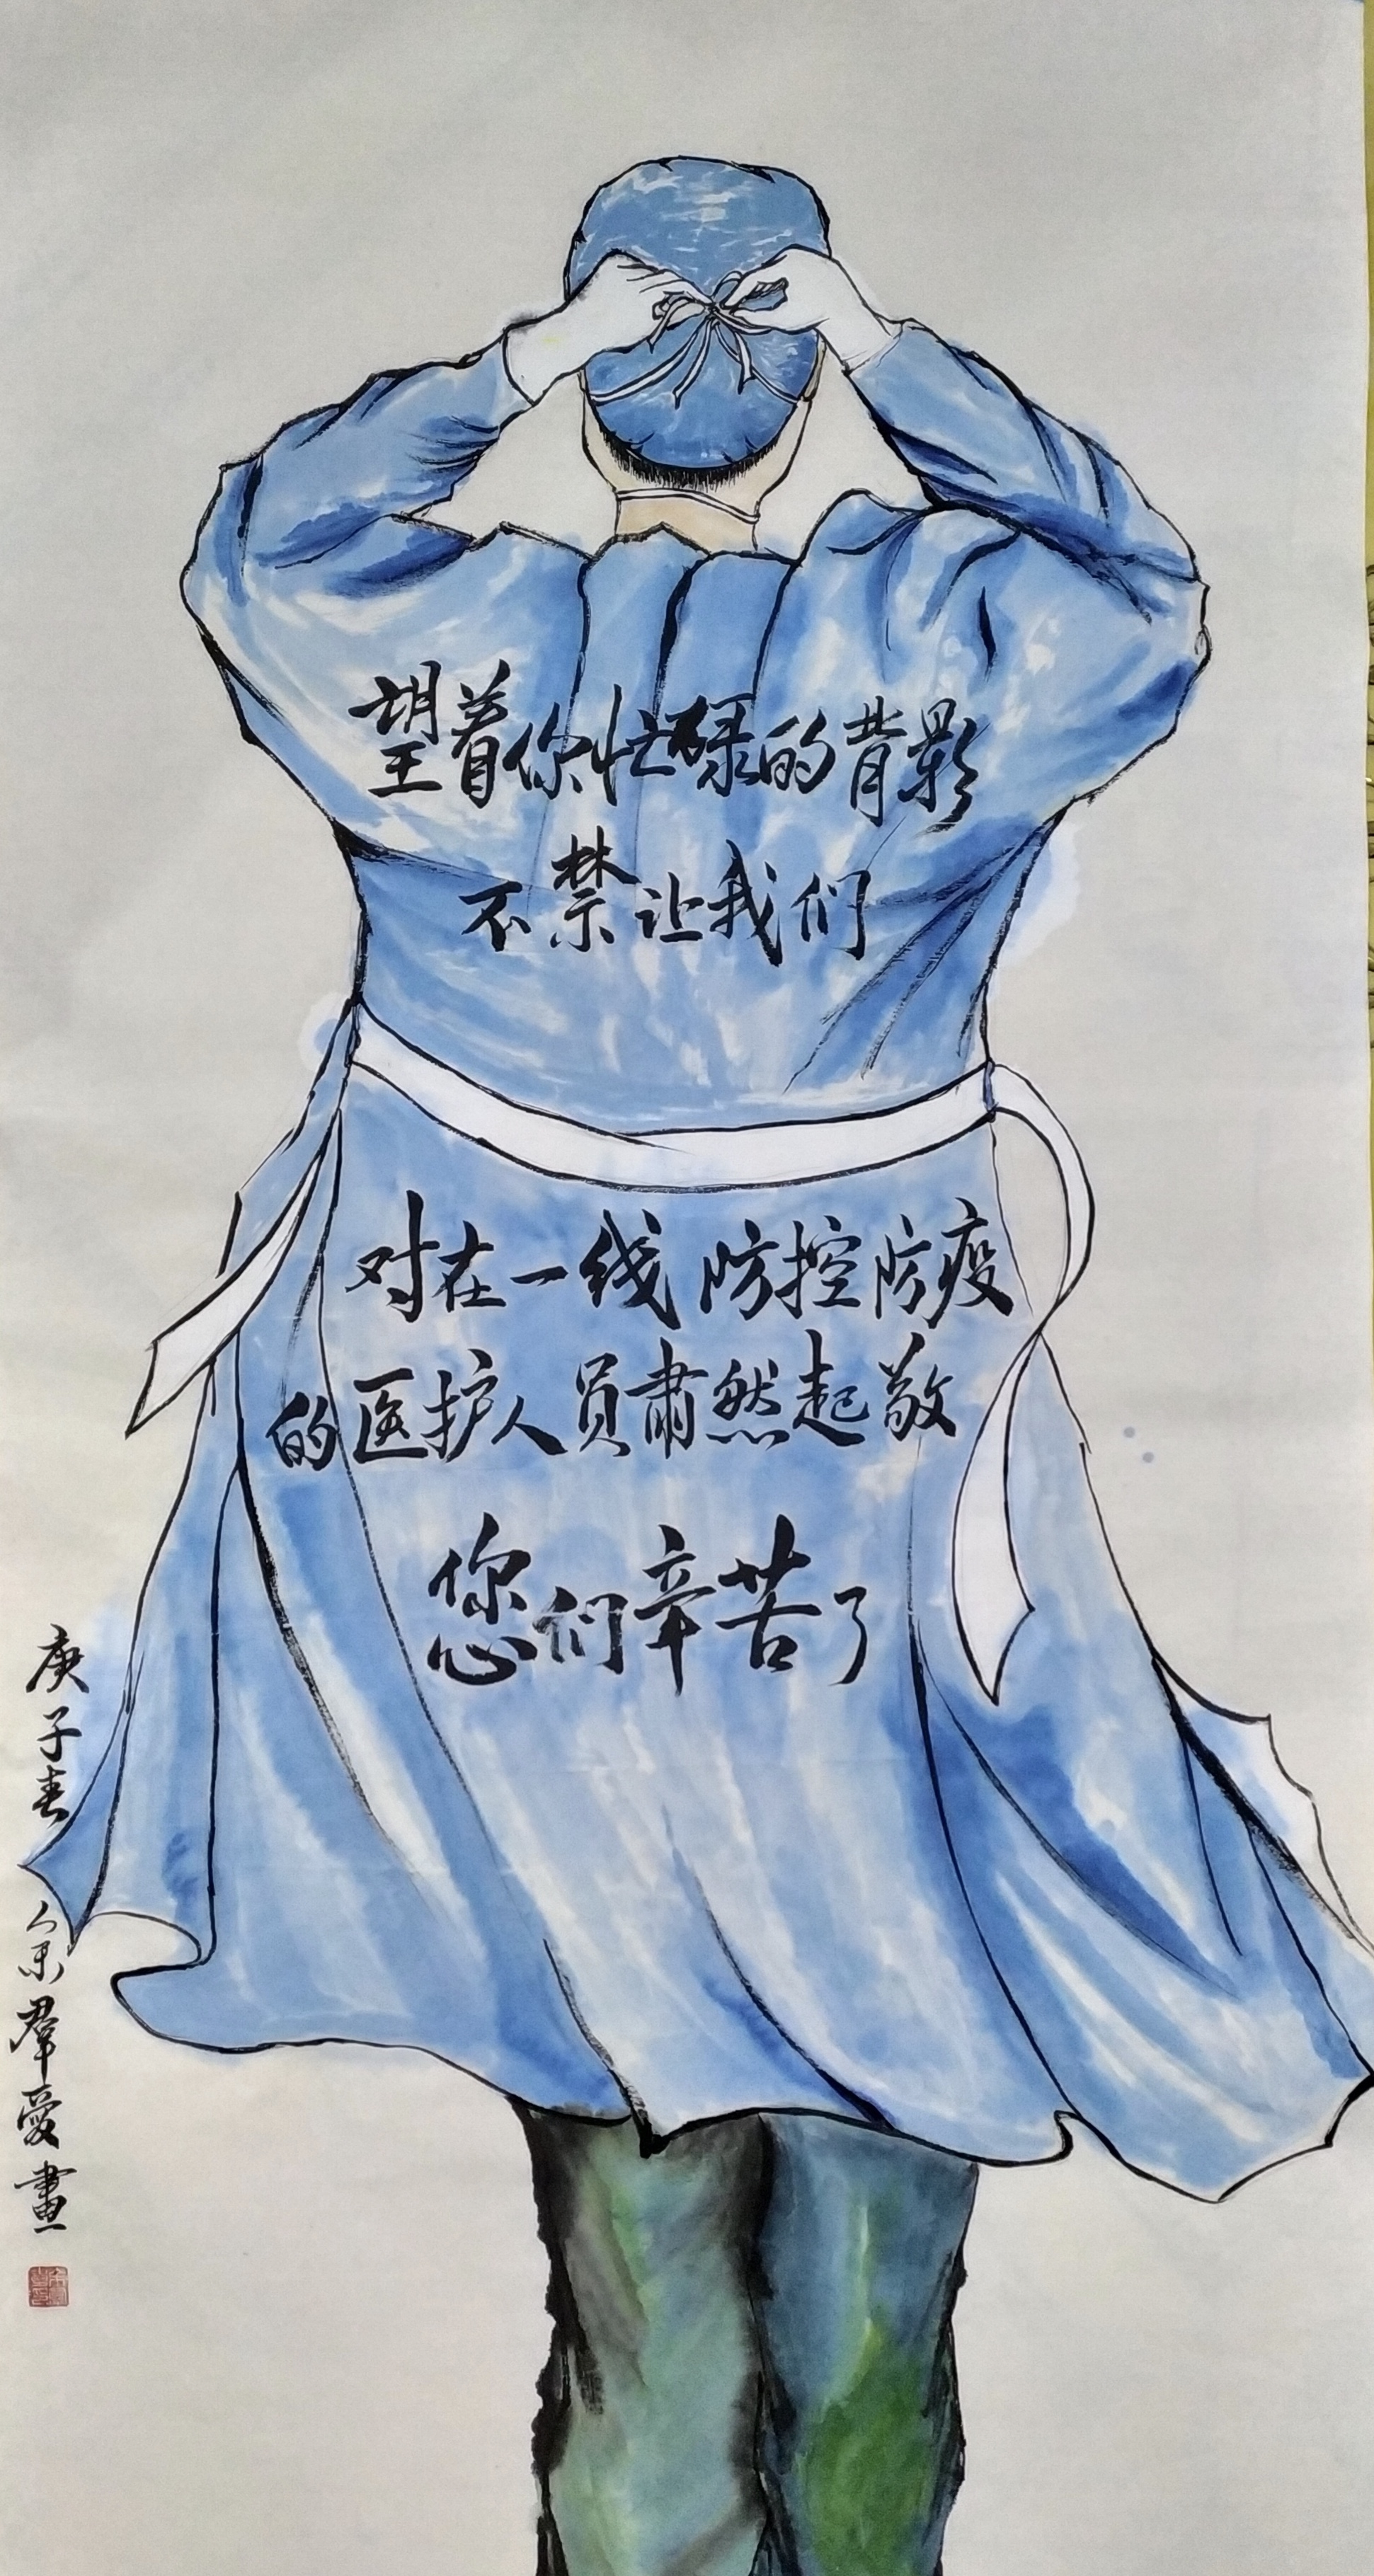 望着你忙碌的背影
不禁让我们
对在一线防控防疫
的医护人员肃然起敬
您们辛苦了
庚子春
余群爱畫